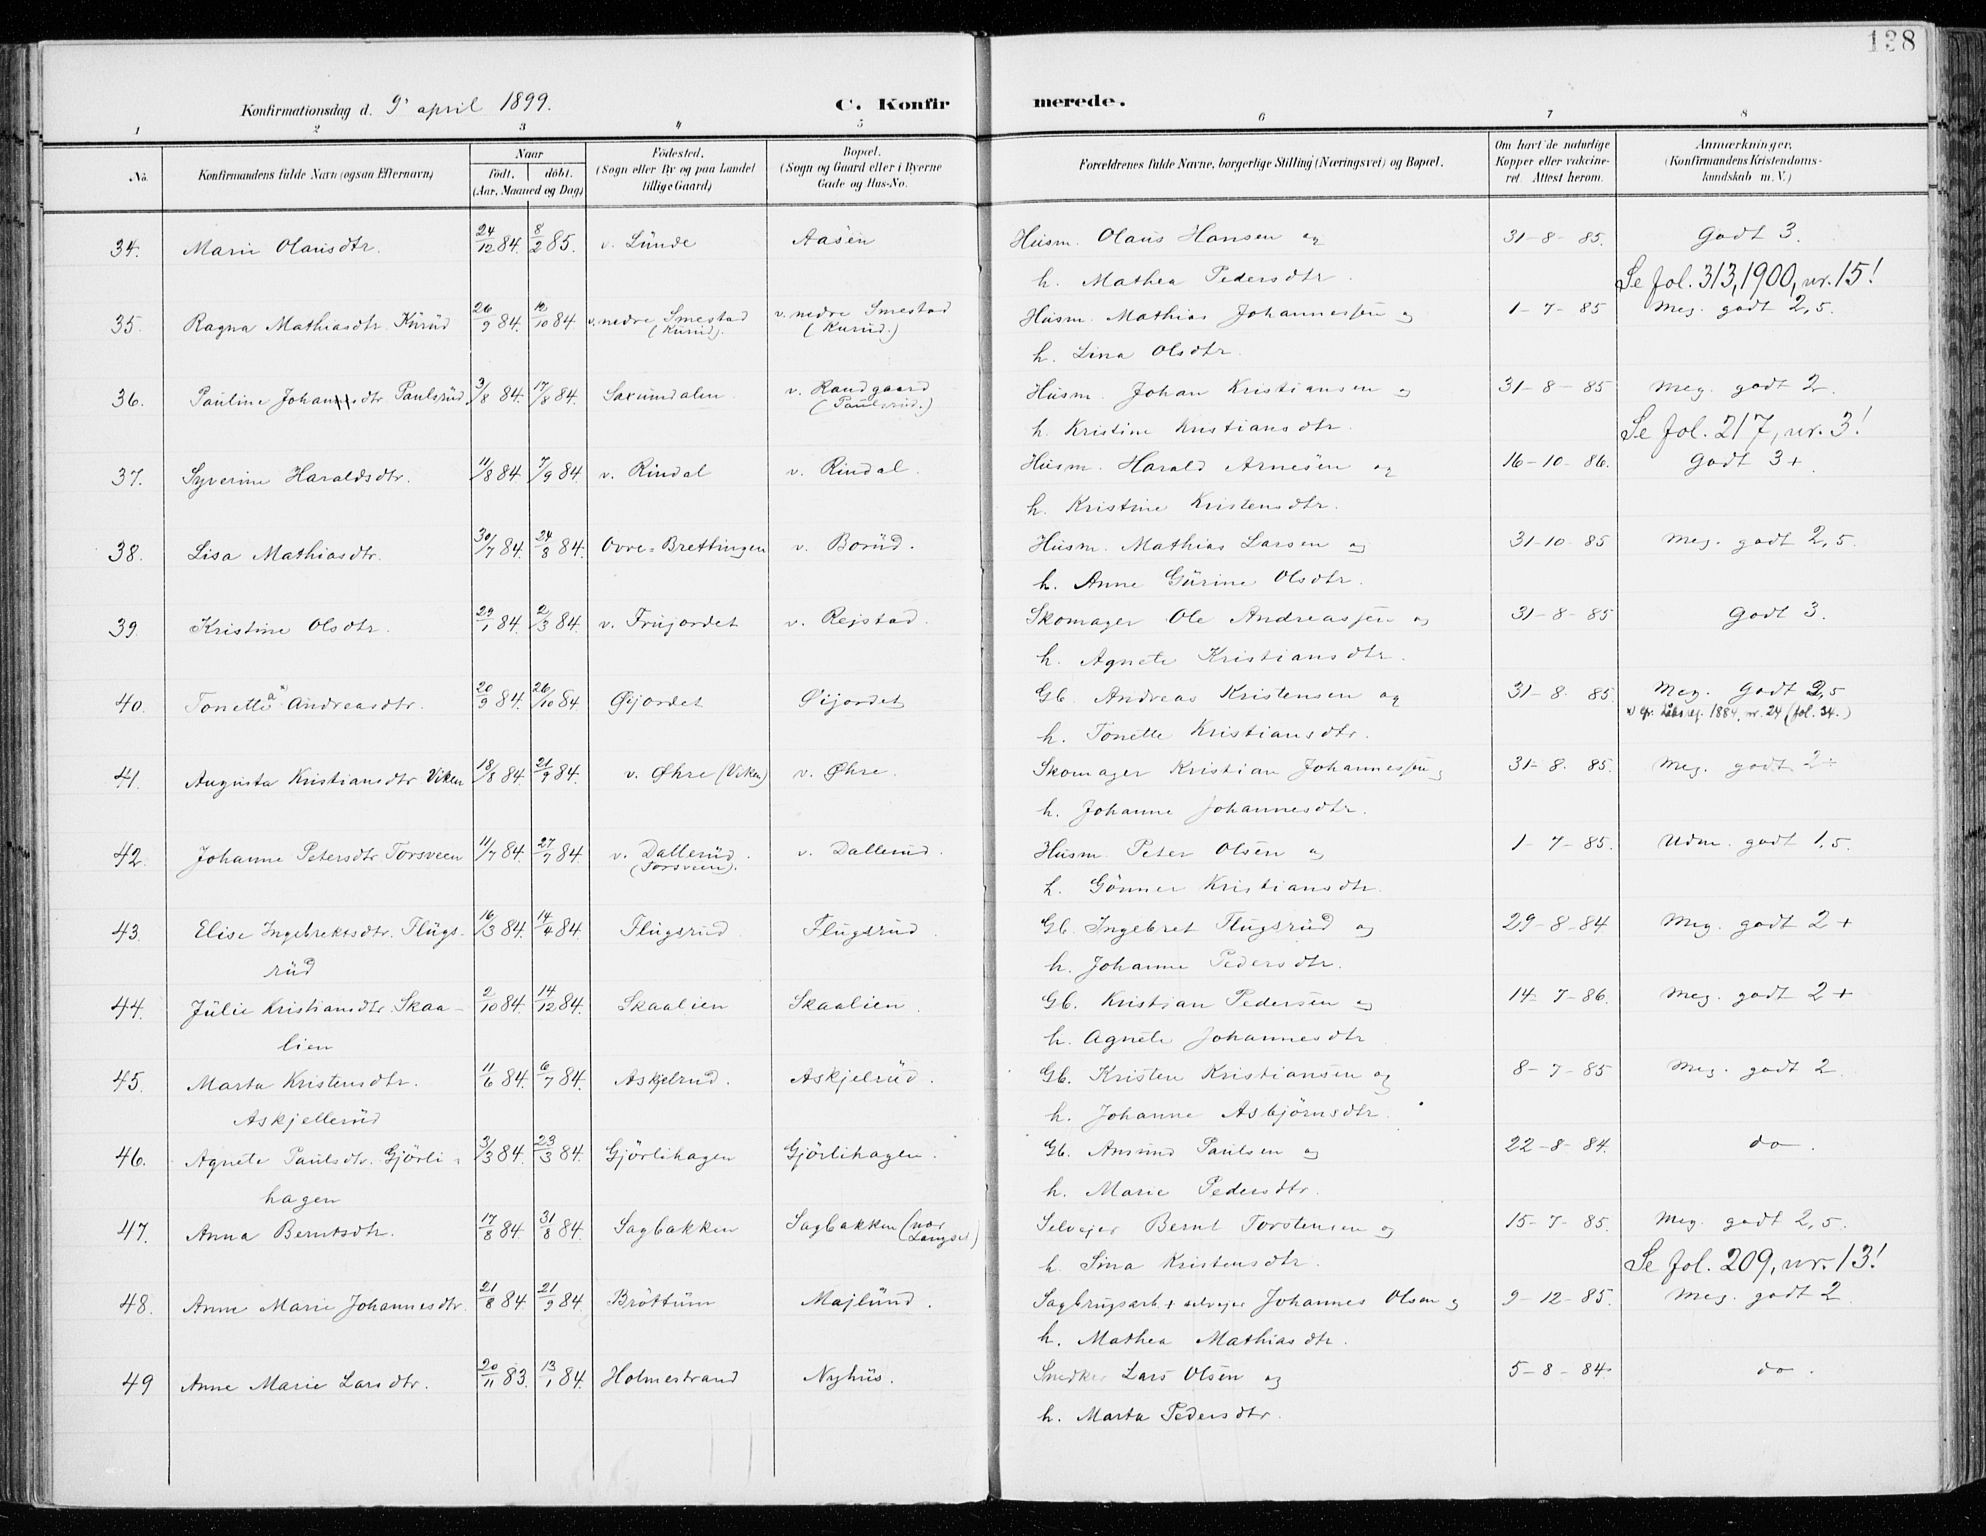 138
Konfirmationsdag d. 9' april 1899. C. Konfirmerede.
1 2 3 4 5 6 7 8
No. Konfirmandens fulde Navn (ogsaa Efternavn) Naar födt. döbt. (Aar, Maaned og Dag) Födested. (Sogn eller By og paa Landet tillige Gaard) Bopæl. (Sogn og Gaard eller i Byerne Gade og Hus-No. Forældrenes fulde Navne, borgerlige Stilling (Næringsvei) og Bopæl. Om havt de naturlige Kopper eller vakcineret. Attest herom. Anmærkninger. (Konfirmandens Kristendomskundskab m. V.)
34. Marie Olausdtr. 24/12 84. 8/2 85. v. Lünde Aasen Husm. Olaus Hansen og 31-8-85. Godt 3.
h. Mathea Pedersdtr. Se fol. 313, 1900, nr. 15!
35. Ragna Mathiasdtr. Kürüd 26/9 84. 12/10 84 v. nedre Smestad (Kurud). v. nedre Smestad (Kurud.) Husm. Mathias Johannessen og 1-7-85 Meg. godt 2,5.
h. Lina Olsdtr.
36. Pauline Johansdtr Paulsrüd 3/8 84. 17/8 84. Saxumdalen v. Randgaard (Paulsrud.) Husm. Johan Kristiansen og 31-8-85 Meg. godt 2
h. Kristine Kristiansdtr. Se fol. 217, nr. 3!
37. Syverine Haraldsdtr. 11/8 84. 7/9 84. v. Rindal v. Rindal. Husm. Harald Arnesen og 16-10-86. Godt 3+
h. Kristine Kristensdtr.
38. Lisa Mathiasdtr. 30/7 84. 24/8 84. Ovre-Brettingen v. Borüd. Husm. Mathias Larsen og 31-10-85 Meg. godt 2,5.
h. Anne Gürine Olsdtr.
39. Kristine Olsdtr. 29/1 84. 2/3 84. v. Früjordet v. Rejstad. Skomager Ole Andreassen og 31-8-85 Godt 3.
h. Agnete Kristiansdtr.
40. Tonette Andreasdtr. 20/9 84. 26/10 84 Øijordet Øijordet Gb. Andreas Kristensen og 31-8-85. Meg. Godt 2,5
1884, nr. 24 (fol. 34.)
h. Tonette Kristiansdtr.
41. Augusta Kristiansdtr Viken 18/8 84. 21/9 84. v. Øhre (Viken) v. Øhre. Skomager Kristian Johannessen og 31-8-85. Meg. godt 2÷
h. Johanne Johannesdtr.
42. Johanne Petersdtr. Torsveen 11/7 84. 27/7 84. v. Dallerüd. (Torsveen). v. Dallerud. Husm. Peter Olsen og 1-7-85. Udm. godt 1,5.
h. Gönner Kristiansdtr.
43. Elise Ingebrektsdtr. Flügs- 16/3 84. 14/4 84. Flugsrud Flugsrud. Gb. Ingebret Flugsrüd og 29-8-84 Meg. godt 2+
rüd h. Johanne Pedersdtr.
44. Jülie Kristiansdtr. Skaa- 2/10 84. 14/12 84. Skaalien Skaalien. Gb. Kristian Pedersen og 14-7-86. Meg. godt 2+
lien h. Agnete Johannesdtr
45. Marta Kristensdtr. 11/6 84. 6/7 84. Askjelrud. Askjelrüd. Gb. Kristen Kristiansen og 8-7-85 Meg. godt 2
Askjellerüd h. Johanne Asbjörnsdtr.
46. Agnete Paulsdtr. Gjörli- 3/3 84. 23/3 84. Gjörlihagen Gjörlihagen. Gb. Amund Paulsen og 22-8-84. do.
hagen h. Marie Pedersdtr.
47. Anna Berntsdtr. 17/8 84. 31/8 84. Sagbakken Sagbakken Selvejer Bernt Torstensen og 15-7-85. Meg. godt 2,5.
h. Sina Kristensdtr. Se fol. 209, nr. 13!
48. Anne Marie Johannesdtr. 21/8 84. 21/9 84. Bröttum Majlünd. Sagbrugsarb. + selvejer Johannes Olsen og 9-12-85. Meg. godt 2
h. Mathea Mathiasdtr.
49 Anne Marie Larsdtr. 20/11 83. 13/1 84. Holmestrand Nyhüs. Snedker Lars Olsen og 5-8-84 do.
h. Marta Pedersdtr.